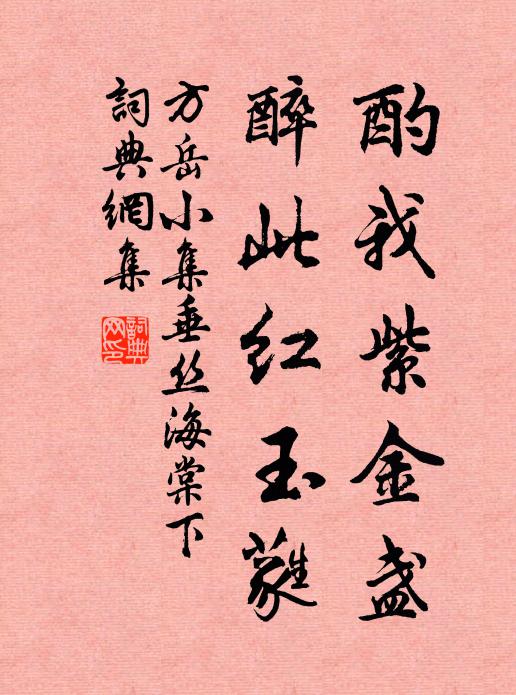 酌我紫金盏
醉此红玉蕤
方岳小集垂丝海棠下
詞典網集
詞典网印